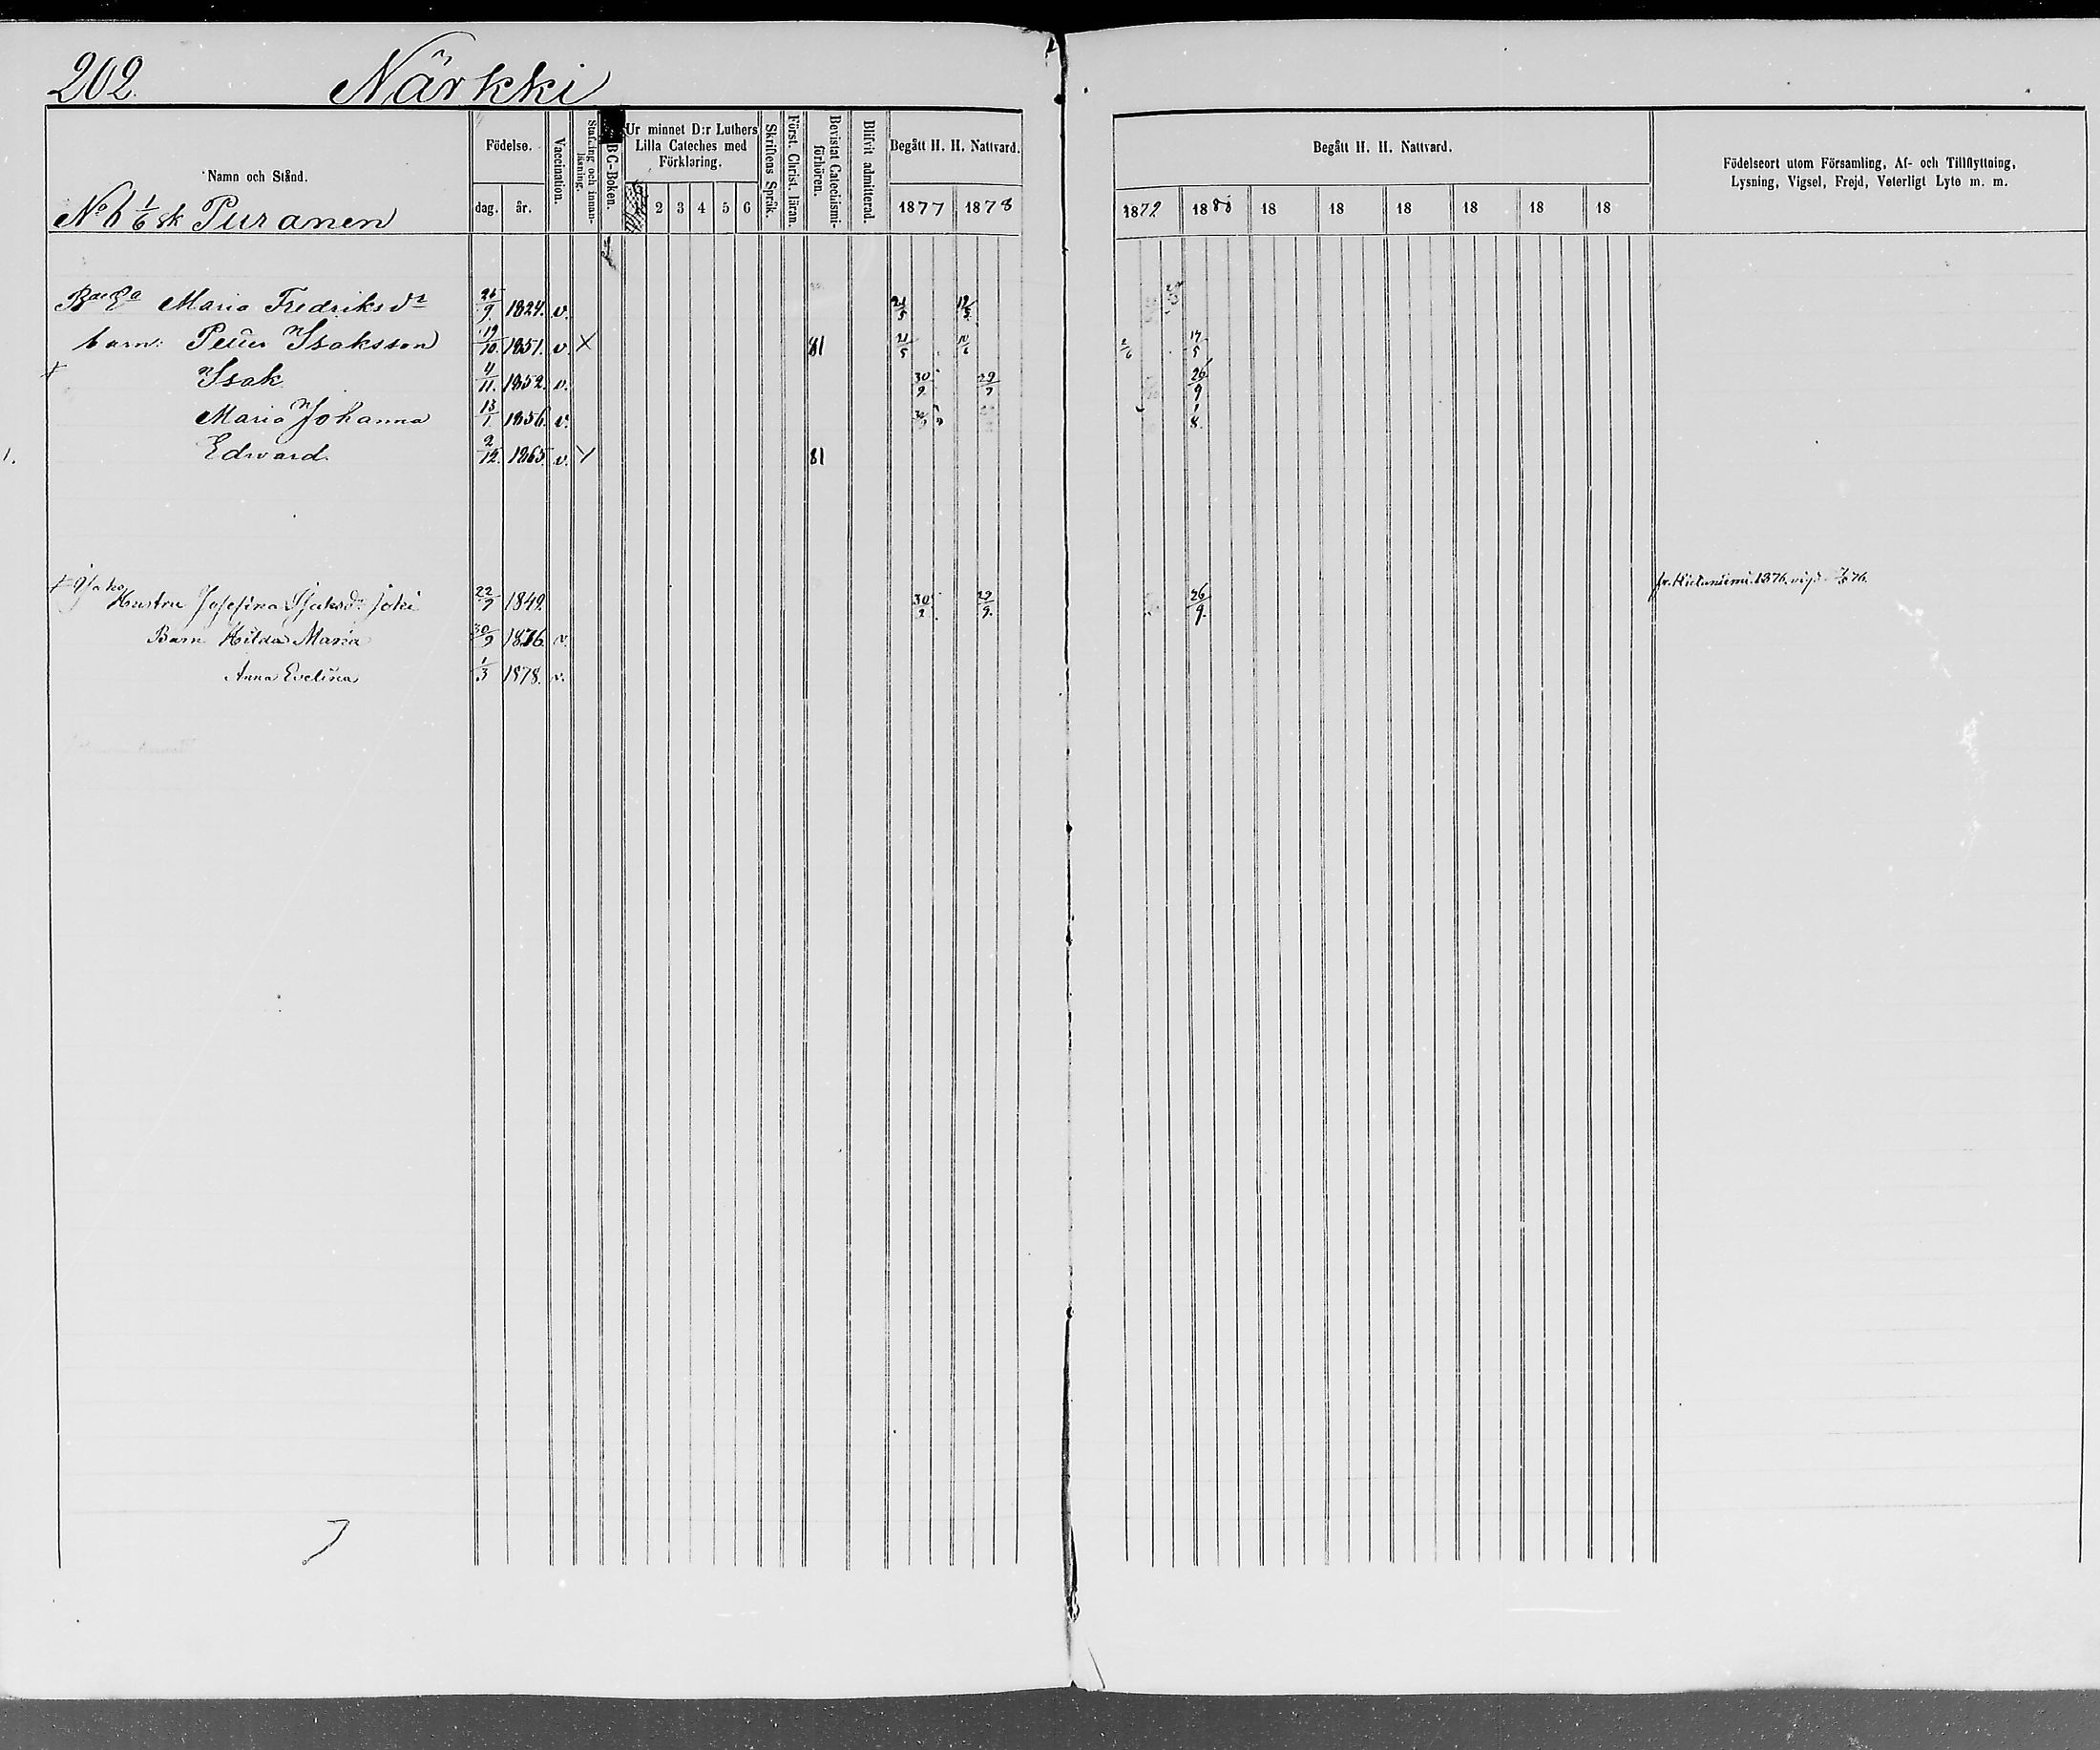 202. Närkki
Namn och Stånd.
Födelse.
dag. år.
Vaccination.
Stafning och innan-
läsning.
BC-Boken.
Ur minnet D:r Luthers
Lilla Cateches med
Förklaring.
2 3 4 5 6
Skriftens Språk.
Först. Christ. läran.
Bevistat Catechismi-
förhören.
Blifvit admitterad.
Begått H. H. Nattvard.
1877 1878
Begått H. H. Nattvard.
1879 1880 18 18 18 18 18 18
Födelseort utom Församling, Af- och Tillflyttning,
Lysning, Vigsel, Frejd, Veterligt Lyte m. m.
No 6 1/6 sk Puranen
Maria Fredriksdr 26/9 1824. v. 21/5 12/5
barn: Petter Isaksson 19/10 1851. v. X 81 21/5 10/6 2/6 17/5
Isak 4/11. 1852. v. 30/9 29/9 26/9
Maria Johanna 13/1 1856. v. 1/8.
1. Edward. 2/12. 1865 v. 81
Hustru Josefina Isaksdr Joki 22/9 1849. 30/9 29/9. 26/9.
Barn Hilda Maria 30/9 1876. v.
Anna Evelina 1/3 1878. v.